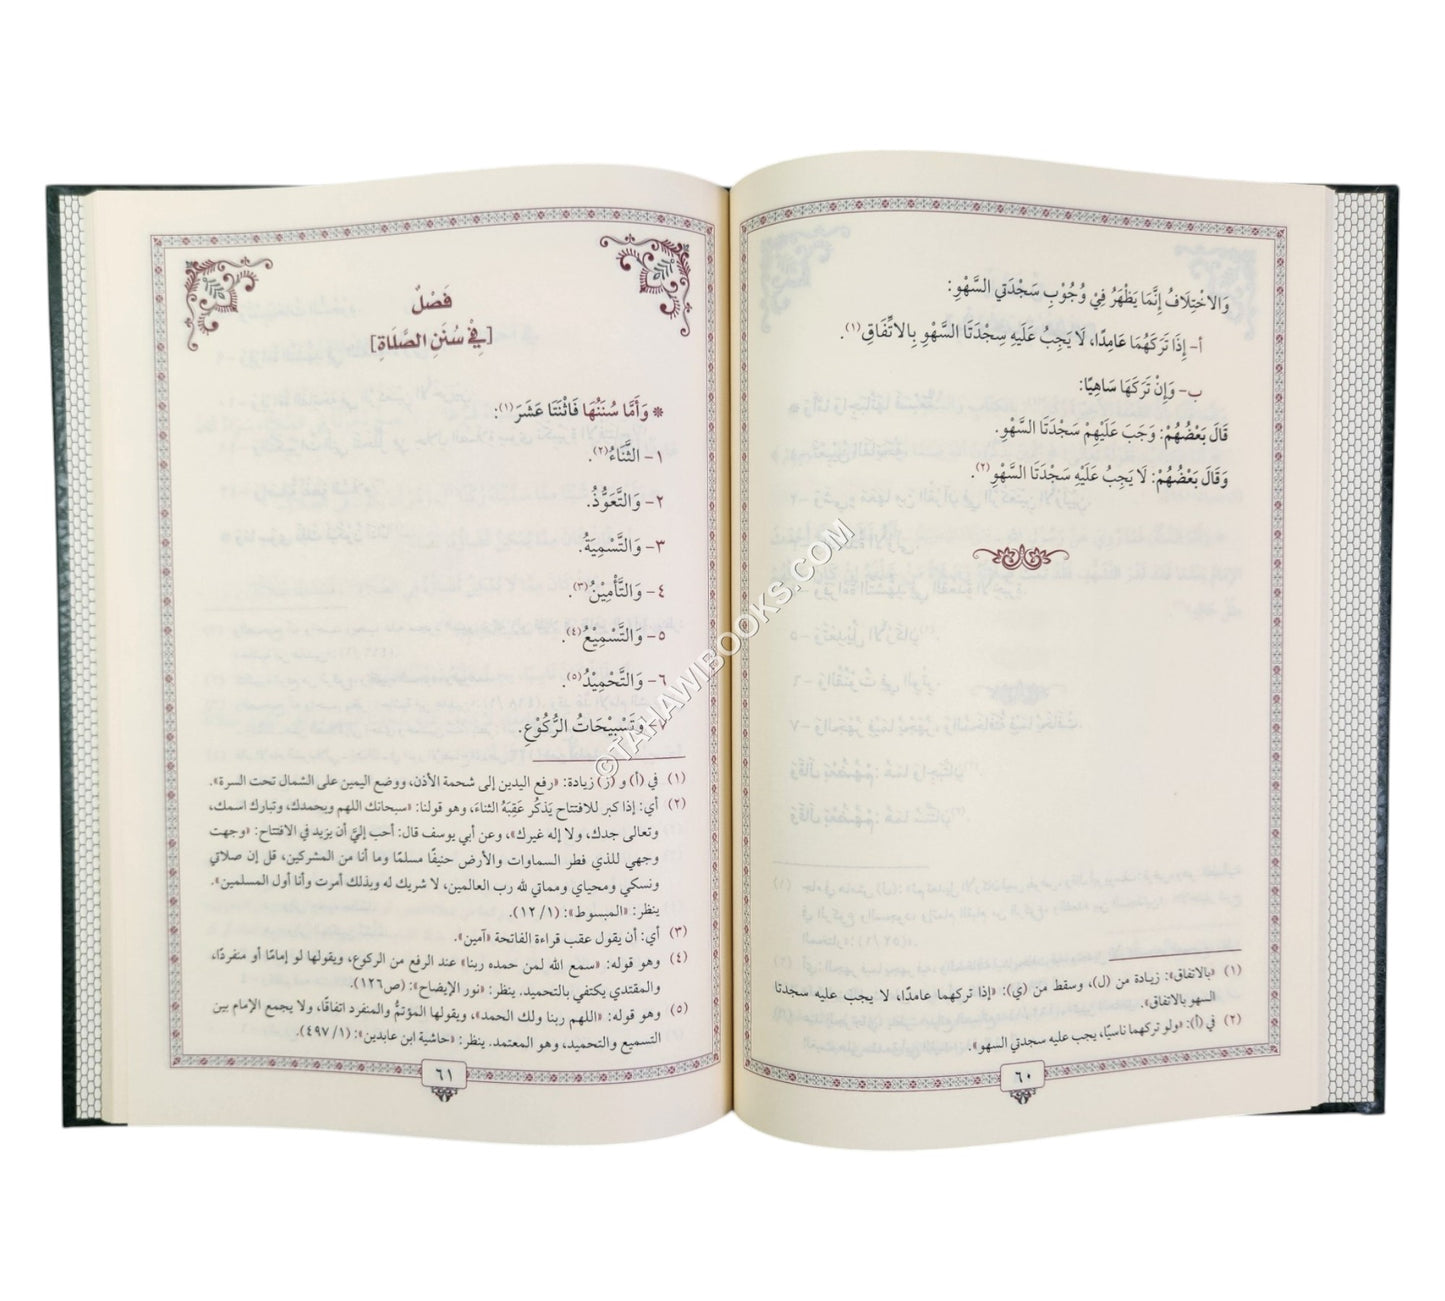 وَالاخْتِلَافُ إِنَّمَا يَظْهَرُ فِيْ وُجُوْبِ سَجْدَتَيِ السَّهْوِ:
أ- إِذَا تَرَكَهُمَا عَامِدًا، لَا يَجِبُ عَلَيهِ سِجْدَتَا السَّهْوِ بِالاتِّفَاقِ(١).
ب- وَإِنْ تَرَكَهَا سَاهِيًا:
قَالَ بَعْضُهُمْ: وَجَبَ عَلَيهِمْ سَجْدَتَا السَّهْوِ.
وَقَالَ بَعْضُهُمْ: لَا يَجِبُ عَلَيْهِ سَجْدَتَا السَّهْوِ(٢).
(١) «بالاتفاق»: زيادة من (ل)، وسقط من (ي): «إذا تركهما عامدًا، لا يجب عليه سجدتا
السهو بالاتفاق».
(٢) في (أ): «ولو تركهما ناسيًا، يجب عليه سجدتي السهو».
٦٠
فَصْلٌ
[فِيْ سُنَنِ الصَّلَاةِ]
* وَأَمَّا سُنَنُهَا فَاثْنَتَا عَشَرَ(١):
١- الثَّنَاءُ(٢).
٢- وَالتَّعَوُّذُ.
٣- وَالتَّسْمِيَةُ.
٤- وَالتَّأْمِيْنُ(٣).
٥- وَالتَّسْمِيْعُ(٤).
٦- وَالتَّحْمِيْدُ(٥).
٧- وَتَسْبِيْحَاتُ الرُّكُوْعِ.
(١) في (أ) و (ز) زيادة: «رفع اليدين إلى شحمة الأذن، ووضع اليمين على الشمال تحت السرة».
(٢) أي: إذا كبر للافتتاح يَذكُر عَقِبَهُ الثناءَ، وهو قولنا: «سبحانك اللهم وبحمدك، وتبارك اسمك،
وتعالى جدك، ولا إله غيرك»، وعن أبي يوسف قال: أحب إليَّ أن يزيد في الافتتاح: «وجهت
وجهي للذي فطر السماوات والأرض حنيفًا مسلمًا وما أنا من المشركين، قل إن صلاتي
ونسكي ومحياي ومماتي لله رب العالمين، لا شريك له وبذلك أمرت وأنا أول المسلمين».
ينظر: «المبسوط»: (١/ ١٢).
(٣) أي: أن يقول عقب قراءة الفاتحة «آمين».
(٤) وهو قوله: «سمع الله لمن حمده ربنا» عند الرفع من الركوع، ويقولها لو إمامًا أو منفردًا،
والمقتدي يكتفي بالتحميد. ينظر: «نور الإيضاح»: (ص١٢٦).
(٥) وهو قوله: «اللهم ربنا ولك الحمد»، ويقولها المؤتمُّ والمنفرد اتفاقًا، ولا يجمع الإمام بين
التسميع والتحميد، وهو المعتمد. ينظر: «حاشية ابن عابدين»: (١/ ٤٩٧).
٦١
©TAHAWIBOOKS.COM